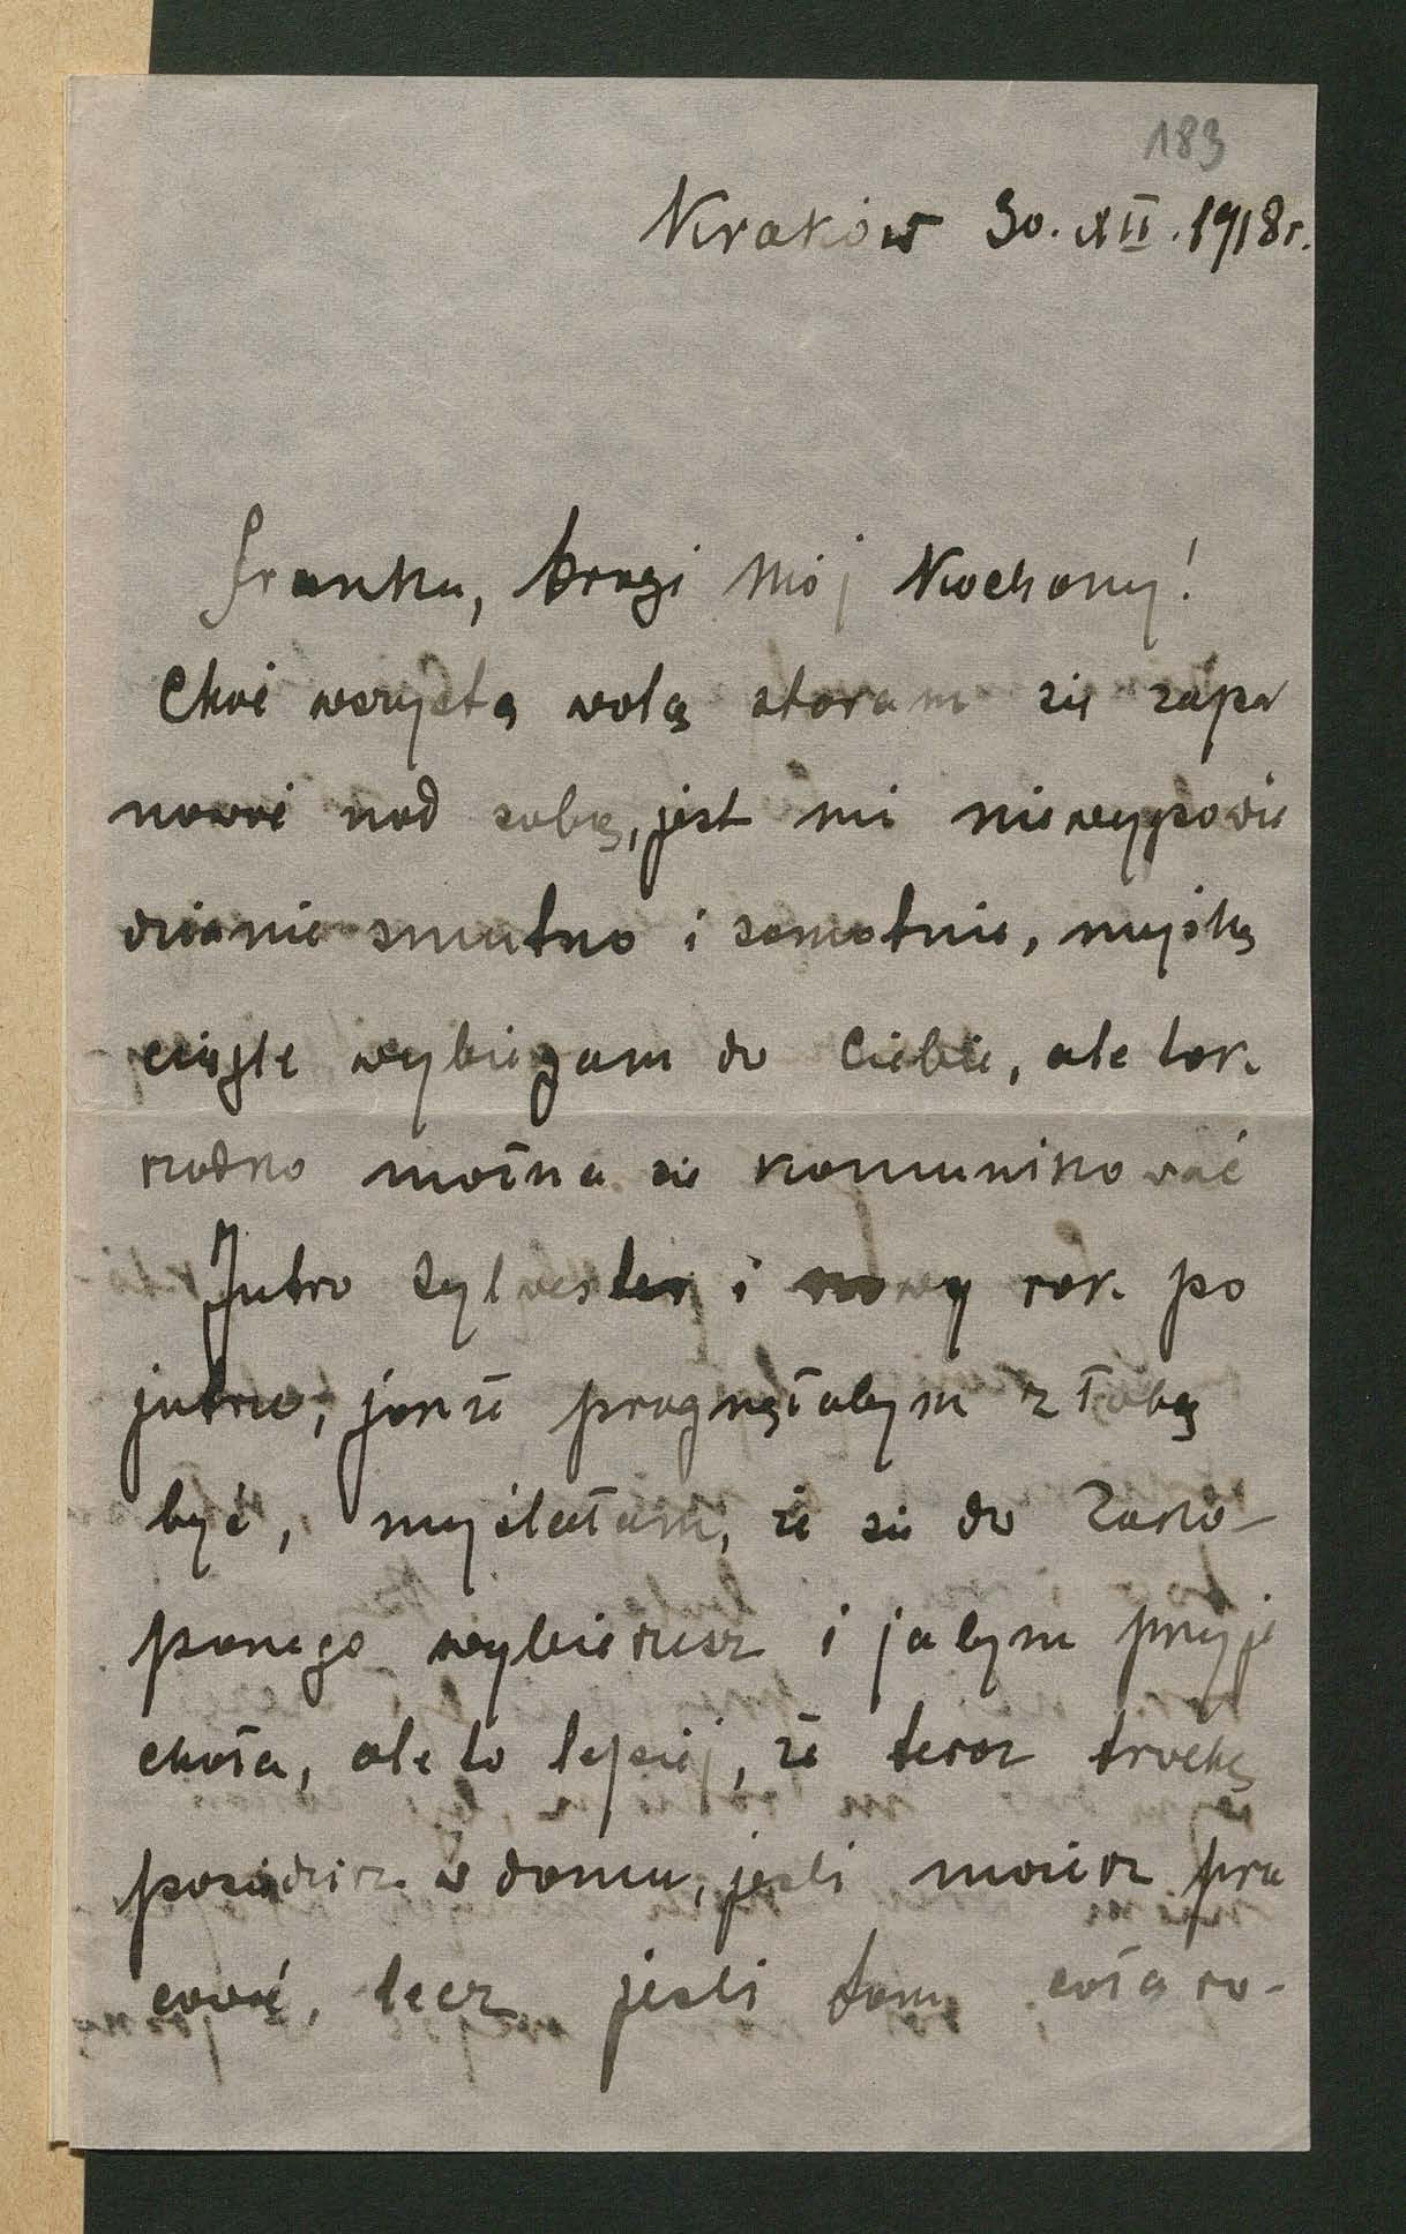 183
Kraków 30. XII. 1918 r.
Franku, Drogi Mój Kochany!
Choć wszystką wolą staram się zapa
nować nad sobą, jest mi niewypowie
dzianie smutno i samotnie, myślą
ciągle wybiegam do Ciebie, ale tak
rzadko można się komunikować
Jutro Sylwester i nowy rok po
jutrze, jakże pragnęłabym z Tobą
być, myślałam, że się do Zako-
panego wybierzesz i jabym przyje
chała, ale to lepiej, że teraz trochę
posiedzisz w domu, jeśli możesz pra
cować, lecz jeśli tam cała ro-